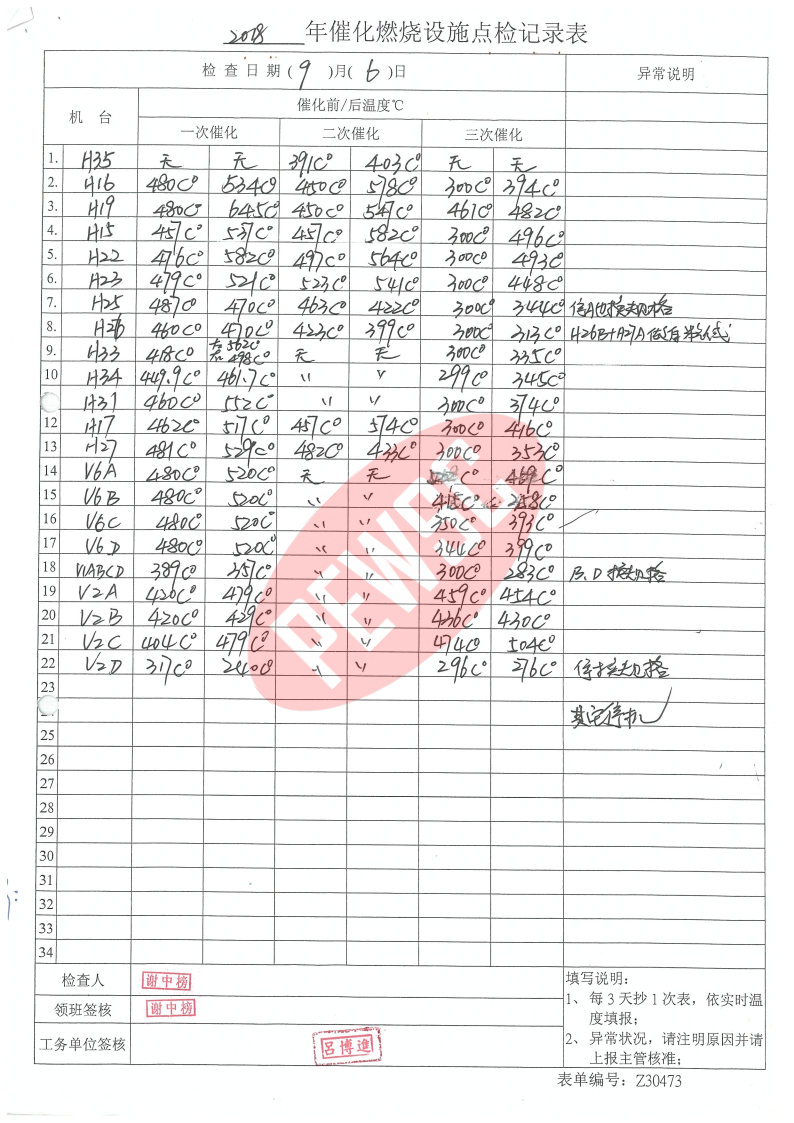 2018 年催化燃烧设施点检记录表
检查日期(9)月(6)日 异常说明
机台 催化前/后温度℃
一次催化 二次催化 三次催化
1. H35 无 无 391C° 403C° 无 无
2. H16 480C° 534C° 450C° 578C° 300C° 394C°
3. H19 480C° 645C° 450C° 547C° 461C° 482C°
4. H15 457C° 537C° 457C° 582C° 300C° 496C°
5. H22 476C° 582C° 497C° 564C° 300C° 493C°
6. H23 479C° 521C° 523C° 541C° 300C° 448C°
7. H25 487C° 470C° 463C° 422C° 300C° 344C°
8. H26 460C° 470C° 423C° 399C° 300C° 313C° H26B+H27A
9. H33 418C° 左562C° 右498C° 无 无 300C° 335C°
10 H34 449.9C° 461.7C° 〃 〃 299C° 345C°
H37 460C° 552C° 300C° 374C°
12 H17 462C° 517C° 457C° 574C° 300C° 416C°
13 H27 481C° 529C° 482C° 433C° 300C° 353C°
14 V6A 480C° 520C° 无 无 C° 469C°
15 V6B 480C° 520C° 〃 〃 415C° 258C°
16 V6C 480C° 520C° 〃 〃 350C° 393C°
17 V6D 480C° 520C° 〃 〃 344C° 399C°
18 V1ABCD 389C° 357C° 〃 〃 300C° 283C° B.D 换规格
19 V2A 420C° 479C° 〃 〃 459C° 454C°
20 V2B 420C° 429C° 〃 〃 436C° 430C°
21 V2C 404C° 479C° 〃 〃 474C° 504C°
22 V2D 317C° 240C° 〃 〃 296C° 276C° 停换规格
23
其它停机
25
26
27
28
29
30
31
32
33
34
PEWSC
检查人 谢中榜
领班签核 谢中榜
工务单位签核 吕博進
填写说明:
1、每3天抄1次表，依实时温
度填报；
2、异常状况，请注明原因并请
上报主管核准；
表单编号：Z30473